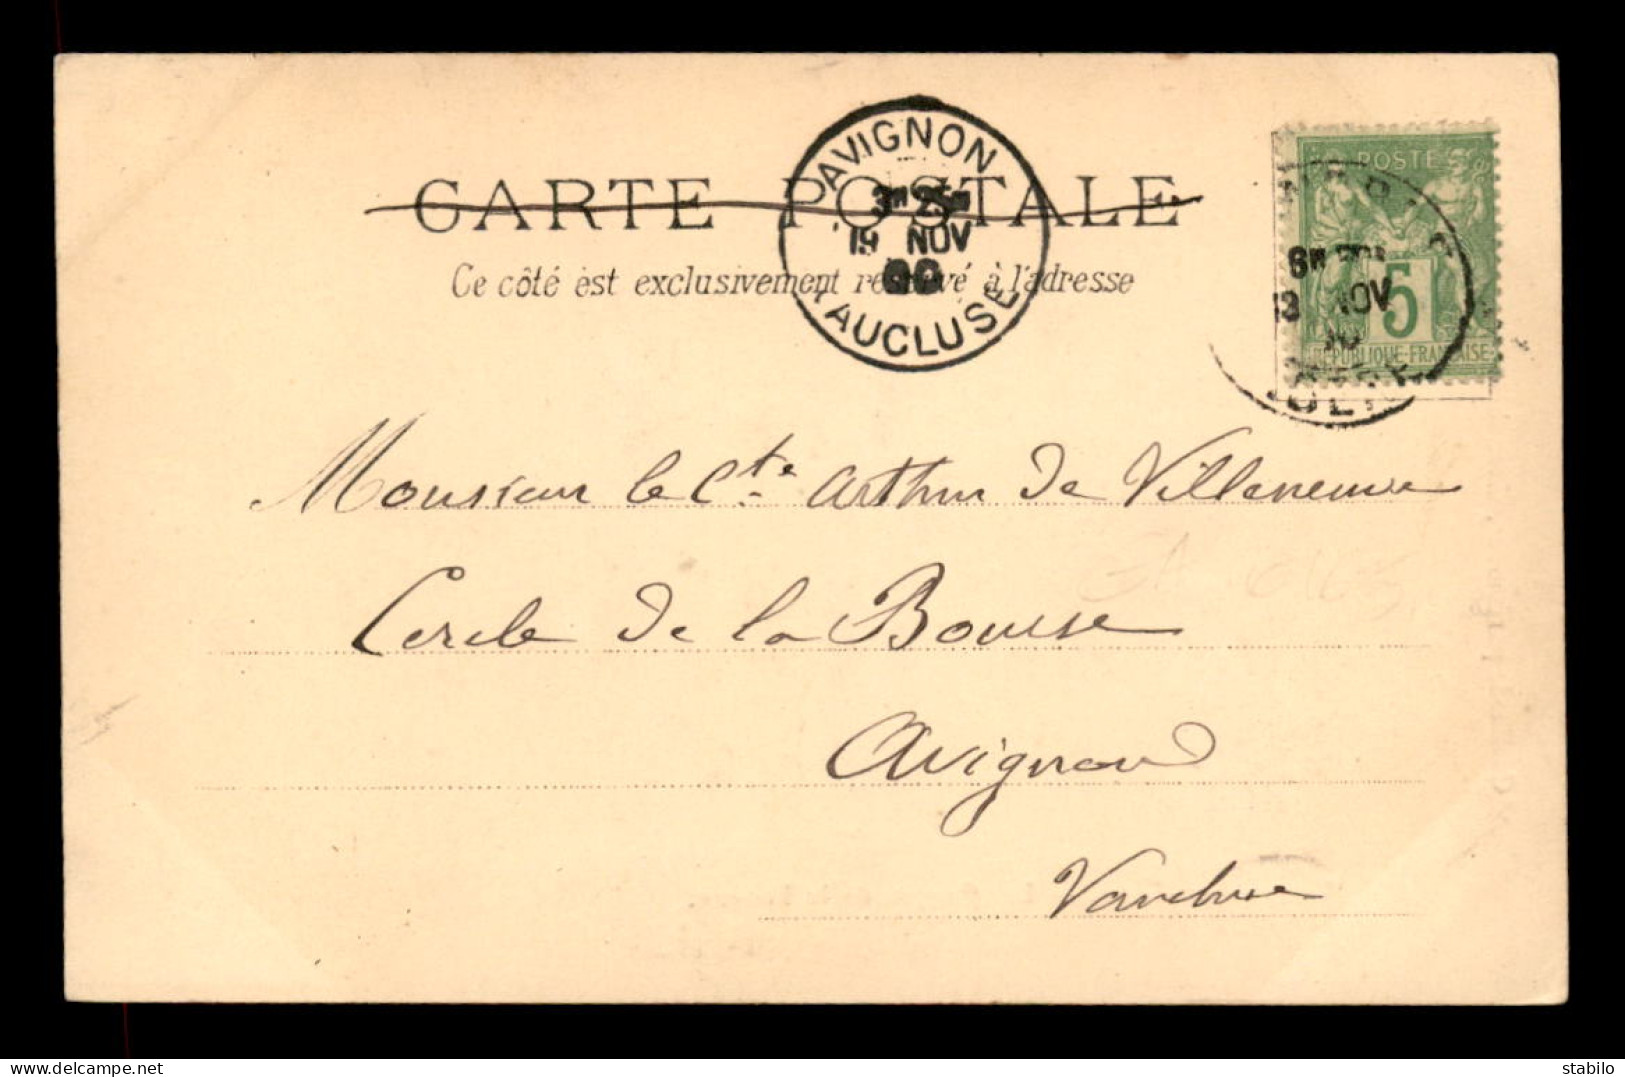 CARTE POSTALE
Ce côté est exclusivement réservé à l'adresse
AVIGNON
3M 25M
19 NOV
00
VAUCLUSE
POSTE
5
REPUBLIQUE-FRANÇAISE
13 NOV
Monsieur le Cte Arthur de Villeneuve
Cercle de la Bourse
Avignon
Vaucluse
delcampe.net
stabilo